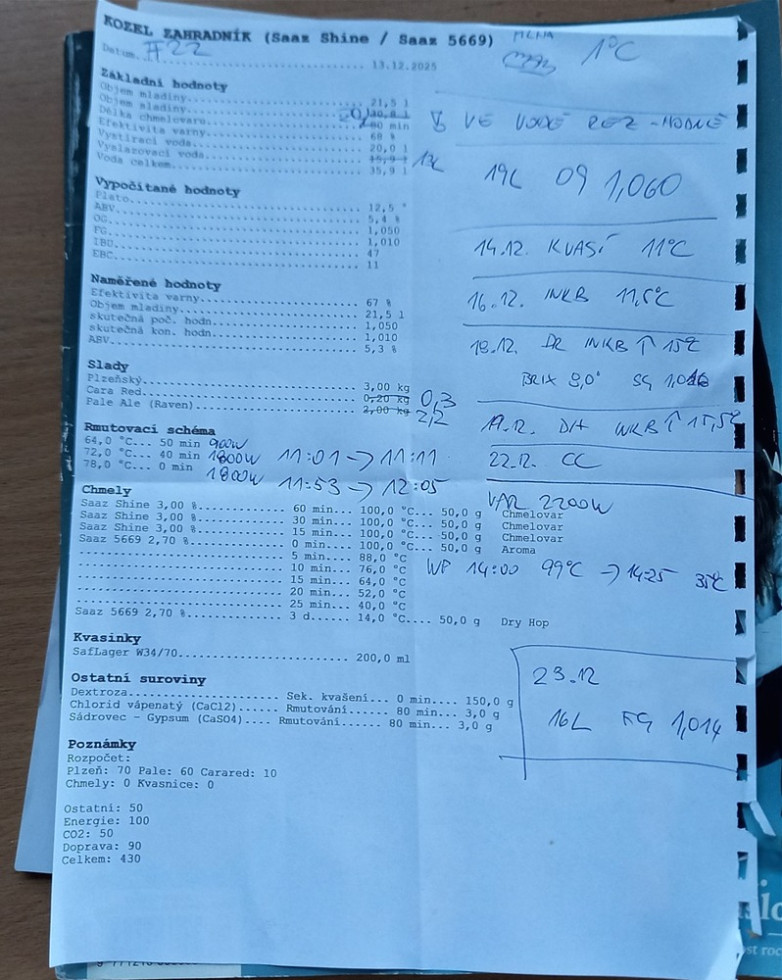 KOZEL ZAHRADNÍK (Saaz Shine / Saaz 5669)
#22
1°C
Datum.......................... 13.12.2025
Základní hodnoty
Objem mladiny.................. 21,5 l
Objem mladiny..................
Délka chmelovaru............... 80 min
Efektivita varny............... 68 %
Vystírací voda................. 20,0 l
Vyslazovací voda............... 15,9 l 13L
Voda celkem.................... 35,9 l
VE VODĚ REZ - HODNĚ
19L OG 1,060
Vypočítané hodnoty
Plato.......................... 12,5 °
ABV............................ 5,4 %
OG............................. 1,050
FG............................. 1,010
IBU............................ 47
EBC............................ 11
14.12. KVASÍ 11°C
16.12. INKB 11,5°C
Naměřené hodnoty
Efektivita varny............... 67 %
Objem mladiny.................. 21,5 l
skutečná poč. hodn............. 1,050
skutečná kon. hodn............. 1,010
ABV............................ 5,3 %
18.12. DR INKB ↑ 15°C
BRIX 9,0° SG
Slady
Plzeňský....................... 3,00 kg
Cara Red....................... 0,20 kg 0,3
Pale Ale (Raven)............... 2,00 kg 2,2
19.12. DH INKB ↑ 15,5°C
22.12. CC
Rmutovací schéma
64,0 °C... 50 min 900W
72,0 °C... 40 min 1800W 11:01 → 11:11
78,0 °C... 0 min 1800W 11:53 → 12:05
VAR 2200W
Chmely
Saaz Shine 3,00 %.............. 60 min... 100,0 °C... 50,0 g Chmelovar
Saaz Shine 3,00 %.............. 30 min... 100,0 °C... 50,0 g Chmelovar
Saaz Shine 3,00 %.............. 15 min... 100,0 °C... 50,0 g Chmelovar
Saaz 5669 2,70 %............... 0 min.... 100,0 °C... 50,0 g Aroma
............................... 5 min.... 88,0 °C
............................... 10 min... 76,0 °C WP 14:00 99°C → 14:25 35°C
............................... 15 min... 64,0 °C
............................... 20 min... 52,0 °C
............................... 25 min... 40,0 °C
Saaz 5669 2,70 %............... 3 d...... 14,0 °C.... 50,0 g Dry Hop
Kvasinky
SafLager W34/70.......................... 200,0 ml
Ostatní suroviny
Dextroza..................... Sek. kvašení... 0 min.... 150,0 g
Chlorid vápenatý (CaCl2).... Rmutování...... 80 min... 3,0 g
Sádrovec - Gypsum (CaSO4).... Rmutování...... 80 min... 3,0 g
23.12
16L FG 1,014
Poznámky
Rozpočet:
Plzeň: 70 Pale: 60 Carared: 10
Chmely: 0 Kvasnice: 0
Ostatní: 50
Energie: 100
CO2: 50
Doprava: 90
Celkem: 430